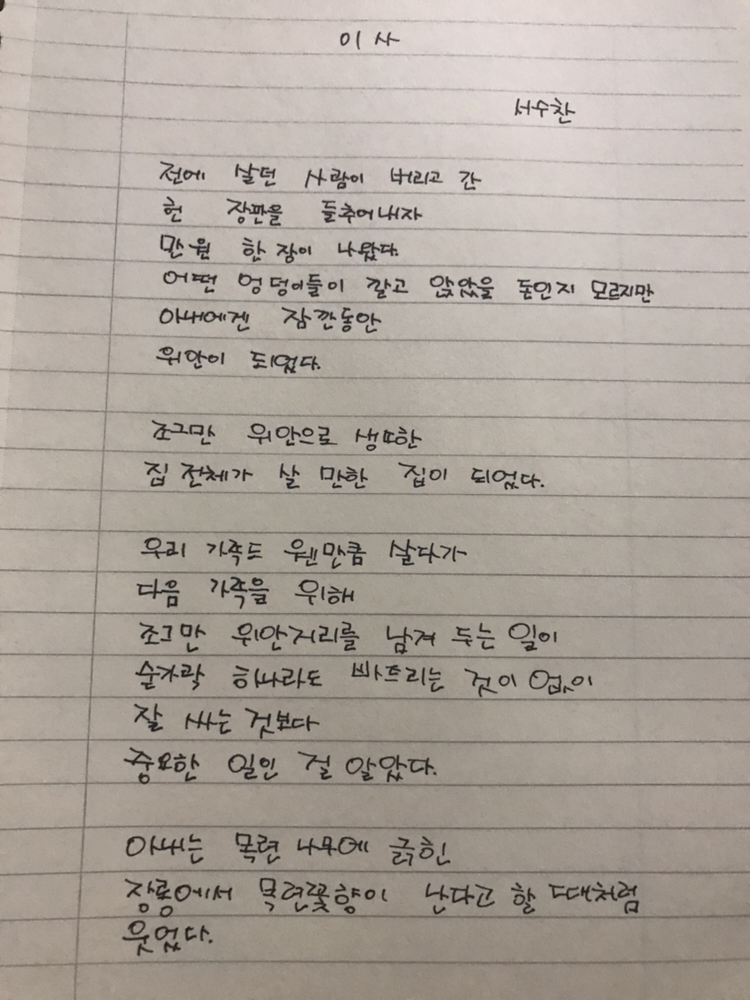 이사
서수찬
전에 살던 사람이 버리고 간
헌 장판을 들추어내자
만원 한 장이 나왔다.
어떤 엉덩이들이 깔고 앉았을 돈인지 모르지만
아내에겐 잠깐동안
위안이 되었다.
조그만 위안으로 생소한
집 전체가 살 만한 집이 되었다.
우리 가족도 웬만큼 살다가
다음 가족을 위해
조그만 위안거리를 남겨 두는 일이
숟가락 하나라도 빠트리는 것이 없이
잘 싸는 것보다
중요한 일인 걸 알았다.
아내는 목련 나무에 긁힌
장롱에서 목련꽃향이 난다고 할 때처럼
웃었다.